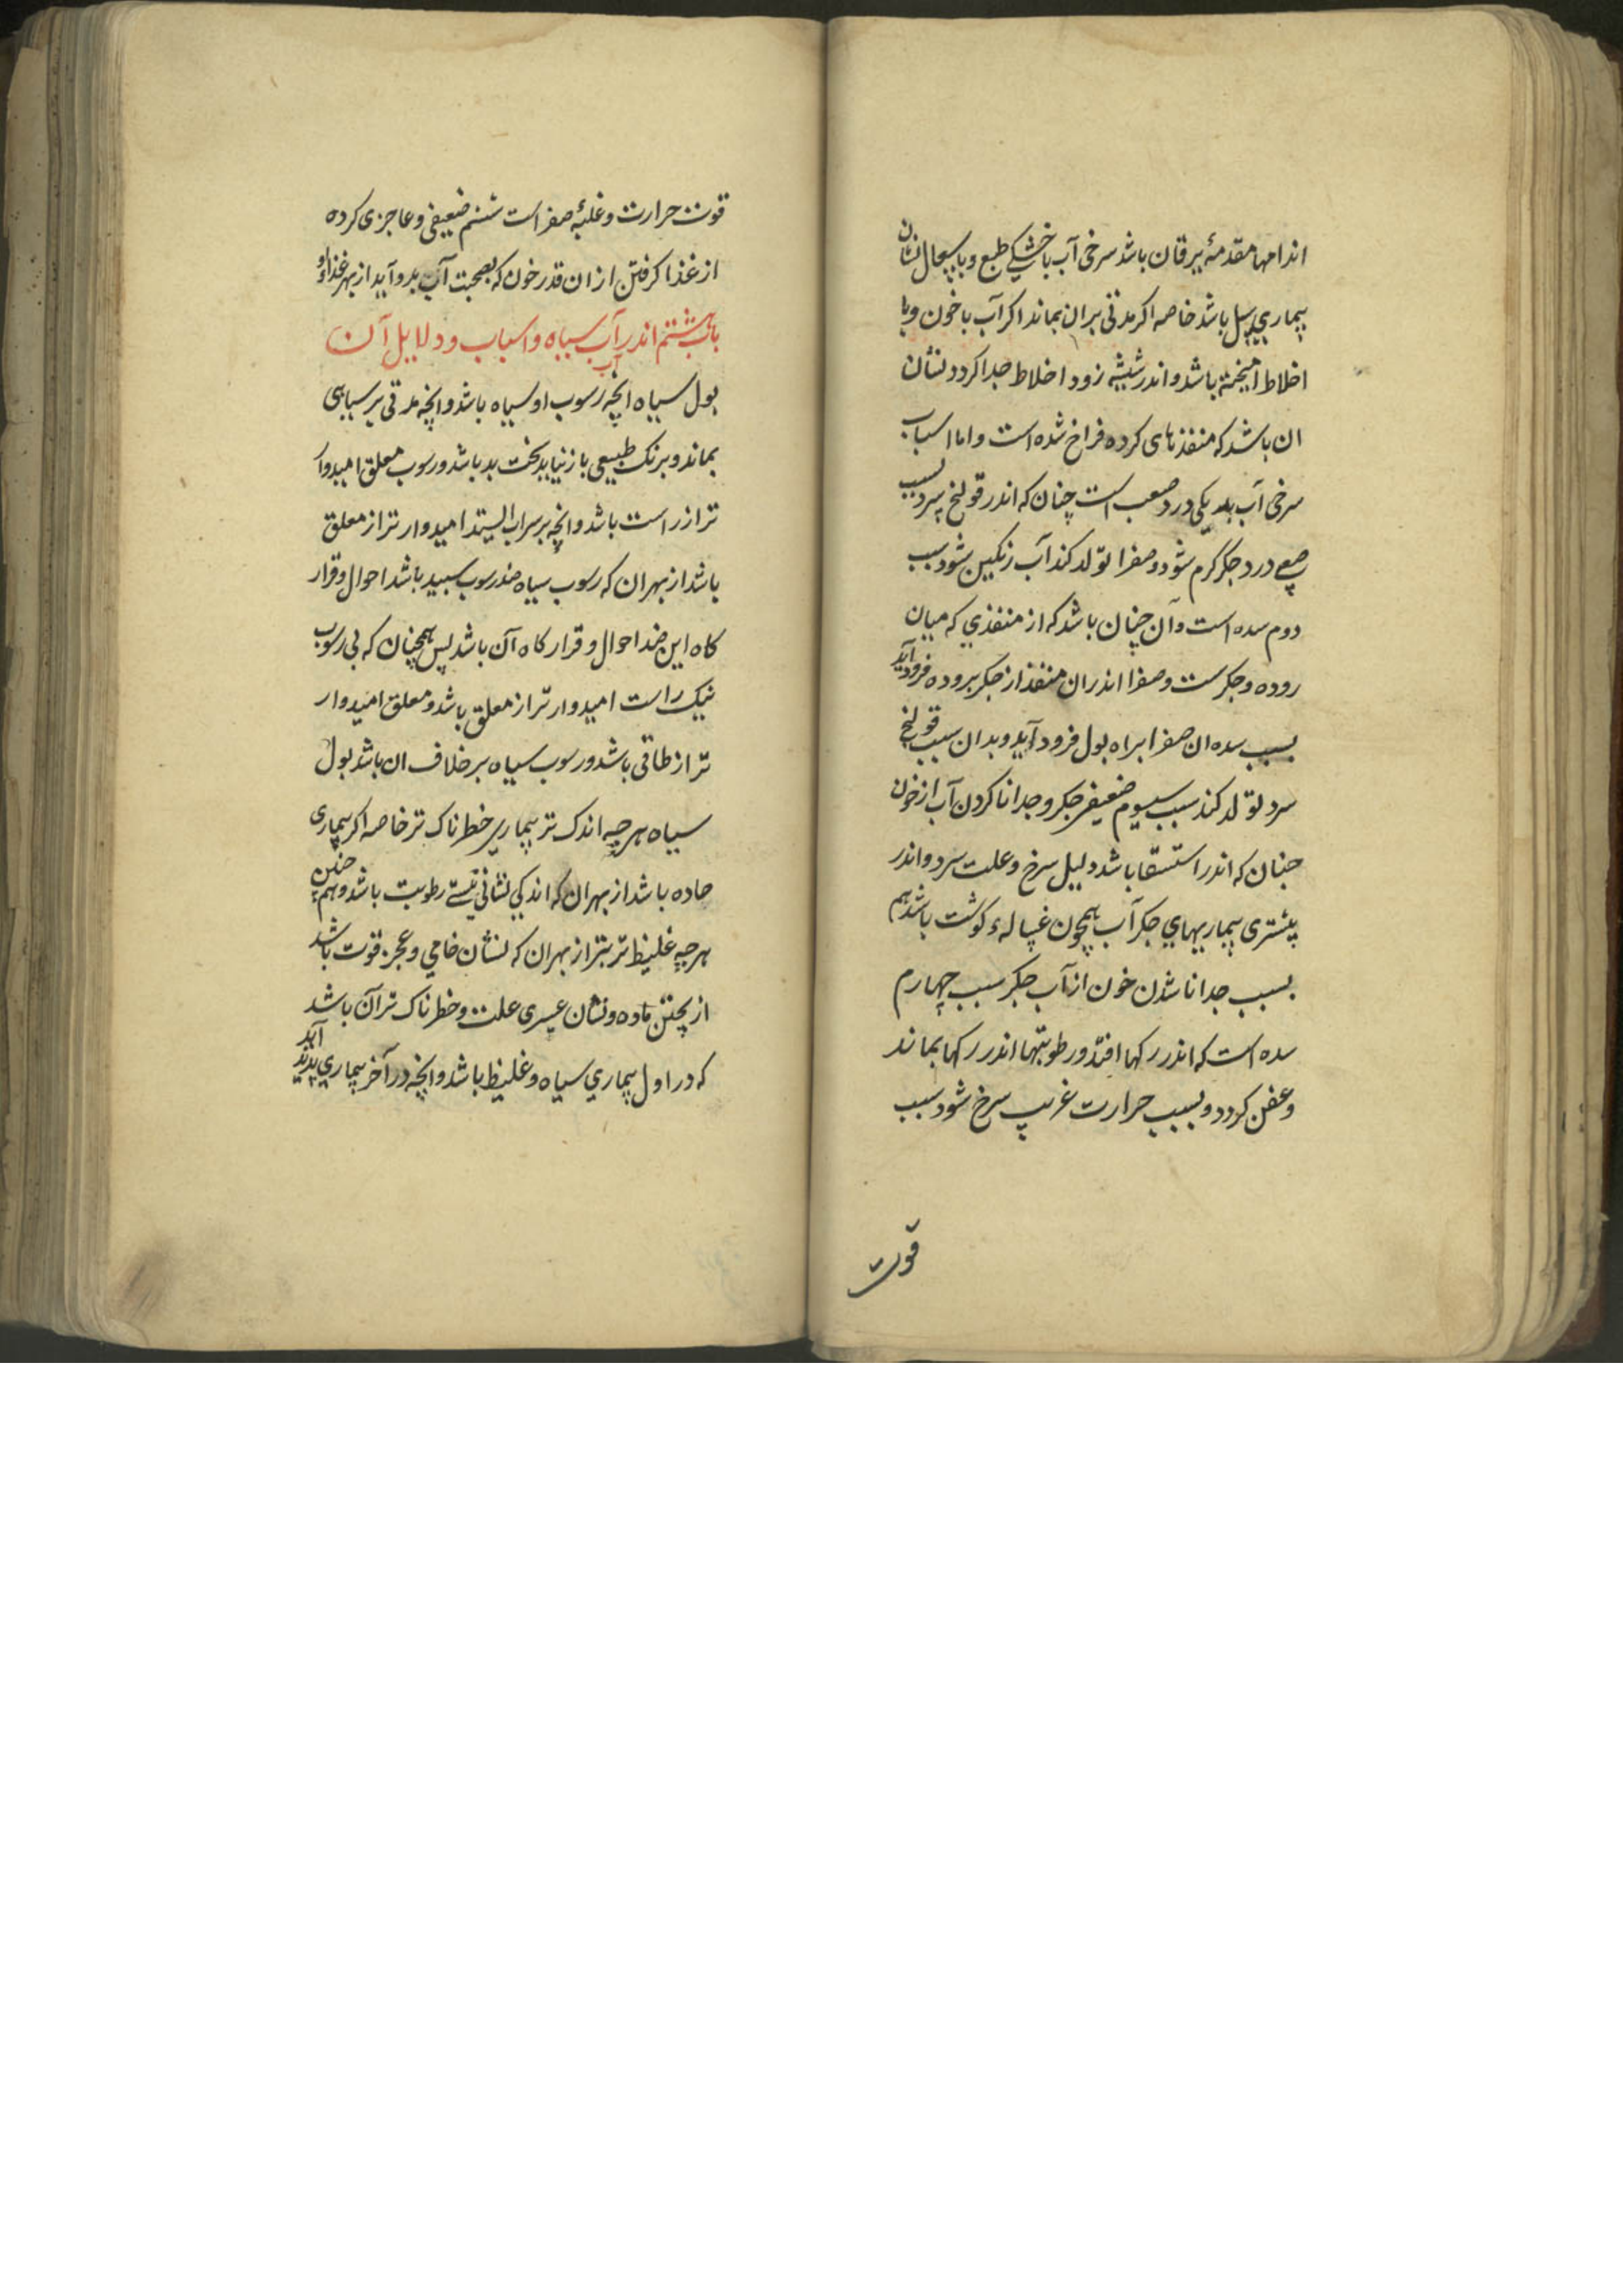 اندامها مقدمهٔ یرقان باشد سرخی آب با خشکی طبع و با سعال نشان
بیماری سل باشد خاصه اکر مدتی بران بماند اکر آب با خون و با
اخلاط امیخته باشد و اندر شیشه زود اخلاط جدا کردد نشان
ان باشد که منفذهای کرده فراخ شده است و اما اسباب
سرخی آب یکی درد صعب است چنان که اندر قولنج سرد بسبب
صعبی درد جکر کرم شود و صفرا تولد کند آب رنکین شود سبب
دوم سده است و آن چنان باشد که از منفذی که میان
روده و جکرست و صفرا اندران منفذ از جکر بروده فرود آید
بسبب سده ان صفرا براه بول فرود آید و بدان سبب قولنج
سرد تولد کند سبب سیوم ضعیفی جکر و جدا ناکردن آب از خون
چنان که اندر استسقا باشد دلیل سرخ و علت سرد و اندر
بیشتری بیماریهای جکر آب همچون غسالهٔ کوشت باشد هم
بسبب جدا ناشدن خون از آب جکر سبب چهارم
سده است که اندر رکها افتد و رطوبتها اندر رکها بماند
و عفن کردد و بسبب حرارت غریب سرخ شود سبب
قوت
قوت حرارت و غلبهٔ صفراست ششم ضعیفی و عاجزی کرده
از غذا کرفتن از ان قدر خون که بصحبت آب بدو آید از بهر غذاء او
باب هشتم اندر آب سیاه و اسباب و دلایل آن
بول سیاه آنچه رسوب او سیاه باشد و آنچه مدتی بر سیاهی
بماند و برنک طبیعی باز نیاید سخت بد باشد و رسوب معلق امیدوار
تر از راست باشد و آنچه بر سر آب ایستد امیدوارتر از معلق
باشد از بهر ان که رسوب سیاه ضد رسوب سپید باشد احوال و قرار
کاه این ضد احوال و قرار کاه آن باشد پس همچنان که بی رسوب
نیک راست امیدوارتر از معلق باشد و معلق امیدوار
تر از طافی باشد و رسوب سیاه بر خلاف ان باشد بول
سیاه هر چه اندک تر بیماری خطرناک تر خاصه اکر بیماری
حاده باشد از بهر ان که اندکی نشانی نیستی رطوبت باشد و هم چنین
هر چه غلیظ تر بتر از بهر ان که نشان خامی و عجز قوت باشد
از پختن ماده و نشان عسری علت و خطرناک تر آن باشد
که در اول بیماری سیاه و غلیظ باشد و آنچه در آخر بیماری پدید آید